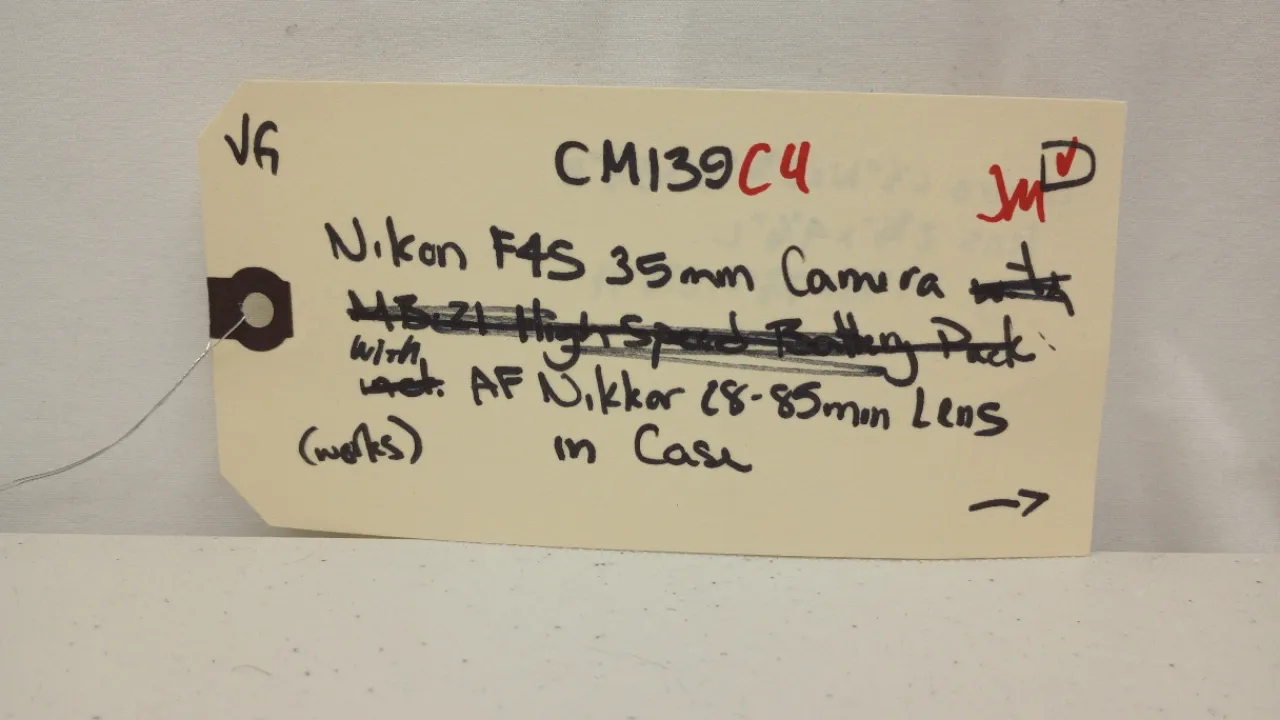 VG
CM139C4
JM D
Nikon F4S 35mm Camera with
MB-21 High Speed Battery Pack
with
AF Nikkor 28-85mm Lens
(works) in Case